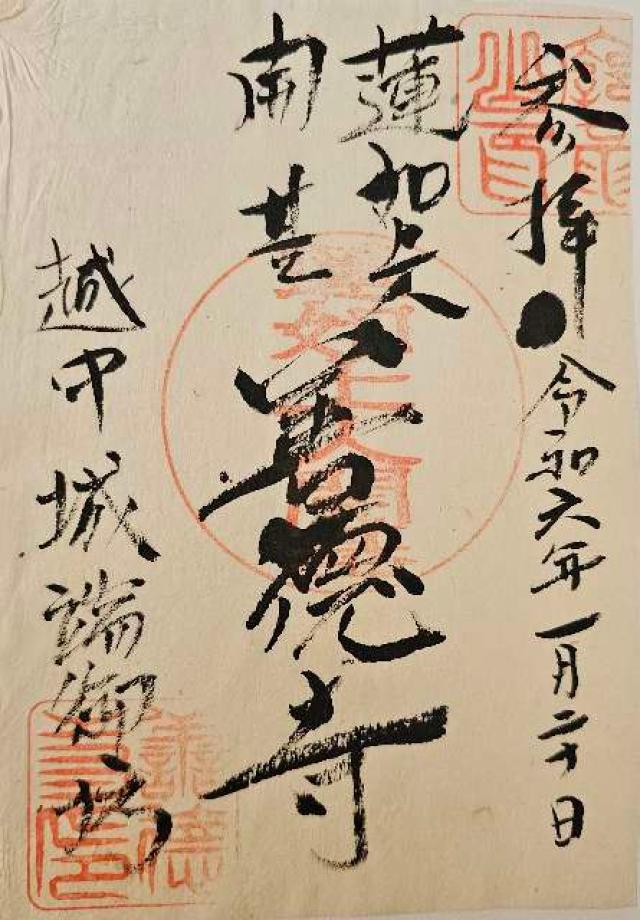 参拝
令和六年一月二十日
蓮如上人
開基
善德寺
越中城端御坊